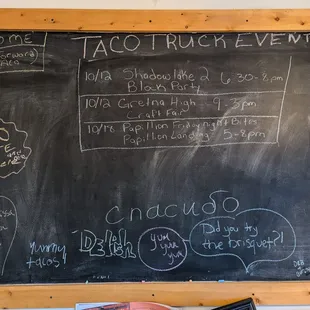 OME
TACO TRUCK EVENT
10/12 Shadowlake 2 6:30-8pm
Block Party
10/12 Gretna High 9-3pm
Craft Fair
Papillion Friday night Bites
Papillion Landing 5-8pm
спасибо
yummy
tacos!
Delish
YUM
YUM
YUM
Did you try
the brisquet?!